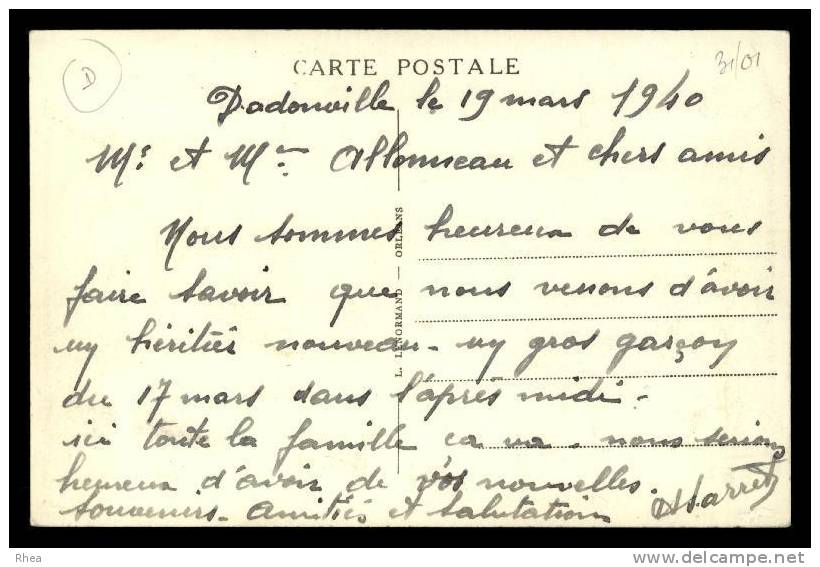 D
CARTE POSTALE
31/01
Dadonville le 19 mars 1940
Mr et Mme Allonneau et chers amis
Nous sommes heureux de vous
faire savoir que nous venons d'avoir
un héritier nouveau - un gros garçon
du 17 mars dans l'après midi -
ici toute la famille ca va. nous serions
heureux d'avoir de vos nouvelles.
souvenirs - amitiés et salutations
L. LENORMAND — ORLÉANS
Rhea
delcampe.net